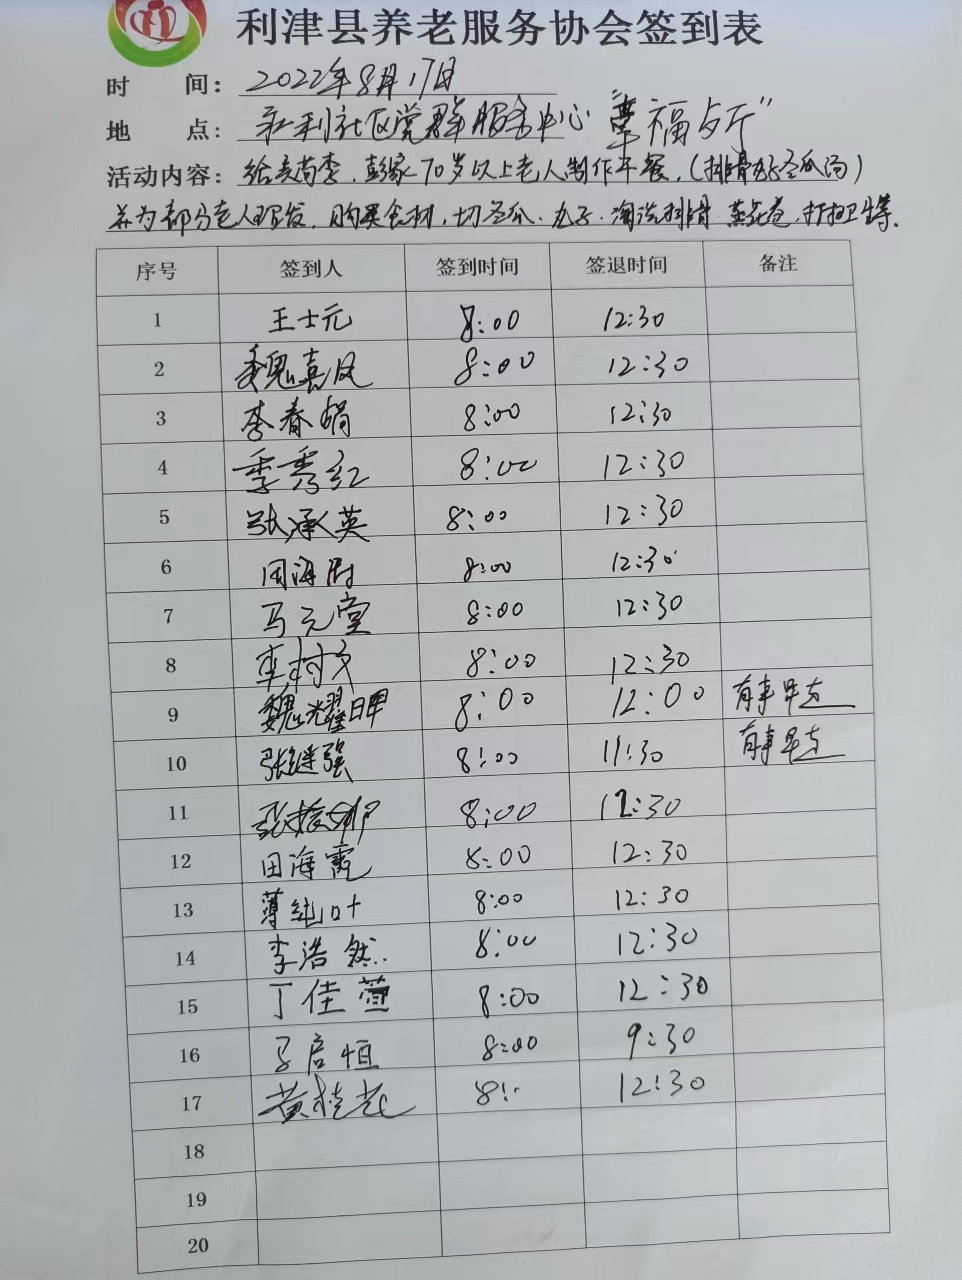 利津县养老服务协会签到表
时 间：2022年8月17日
地 点：利社区党群服务中心 "幸福与厅"
活动内容：给 李、彭家70岁以上老人制作午餐，（排骨丸子冬瓜汤）
并为部分老人理发，购买食材，切冬瓜、丸子、淘洗排骨、蒸花卷，打扫卫生等.
序号 签到人 签到时间 签退时间 备注
1 王士元 8:00 12:30
2 魏嘉凤 8:00 12:30
3 李春娟 8:00 12:30
4 季秀红 8:00 12:30
5 张承英 8:00 12:30
6 8:00 12:30
7 马元堂 8:00 12:30
8 8:00 12:30
9 魏耀 8:00 12:00 有事早走
10 张继强 8:00 11:30 有事早走
11 8:00 12:30
12 田海霞 8:00 12:30
13 薄纯叶 8:00 12:30
14 李浩然.. 8:00 12:30
15 丁佳萱 8:00 12:30
16 启恒 8:00 9:30
17 黄桂花 8: 12:30
18
19
20